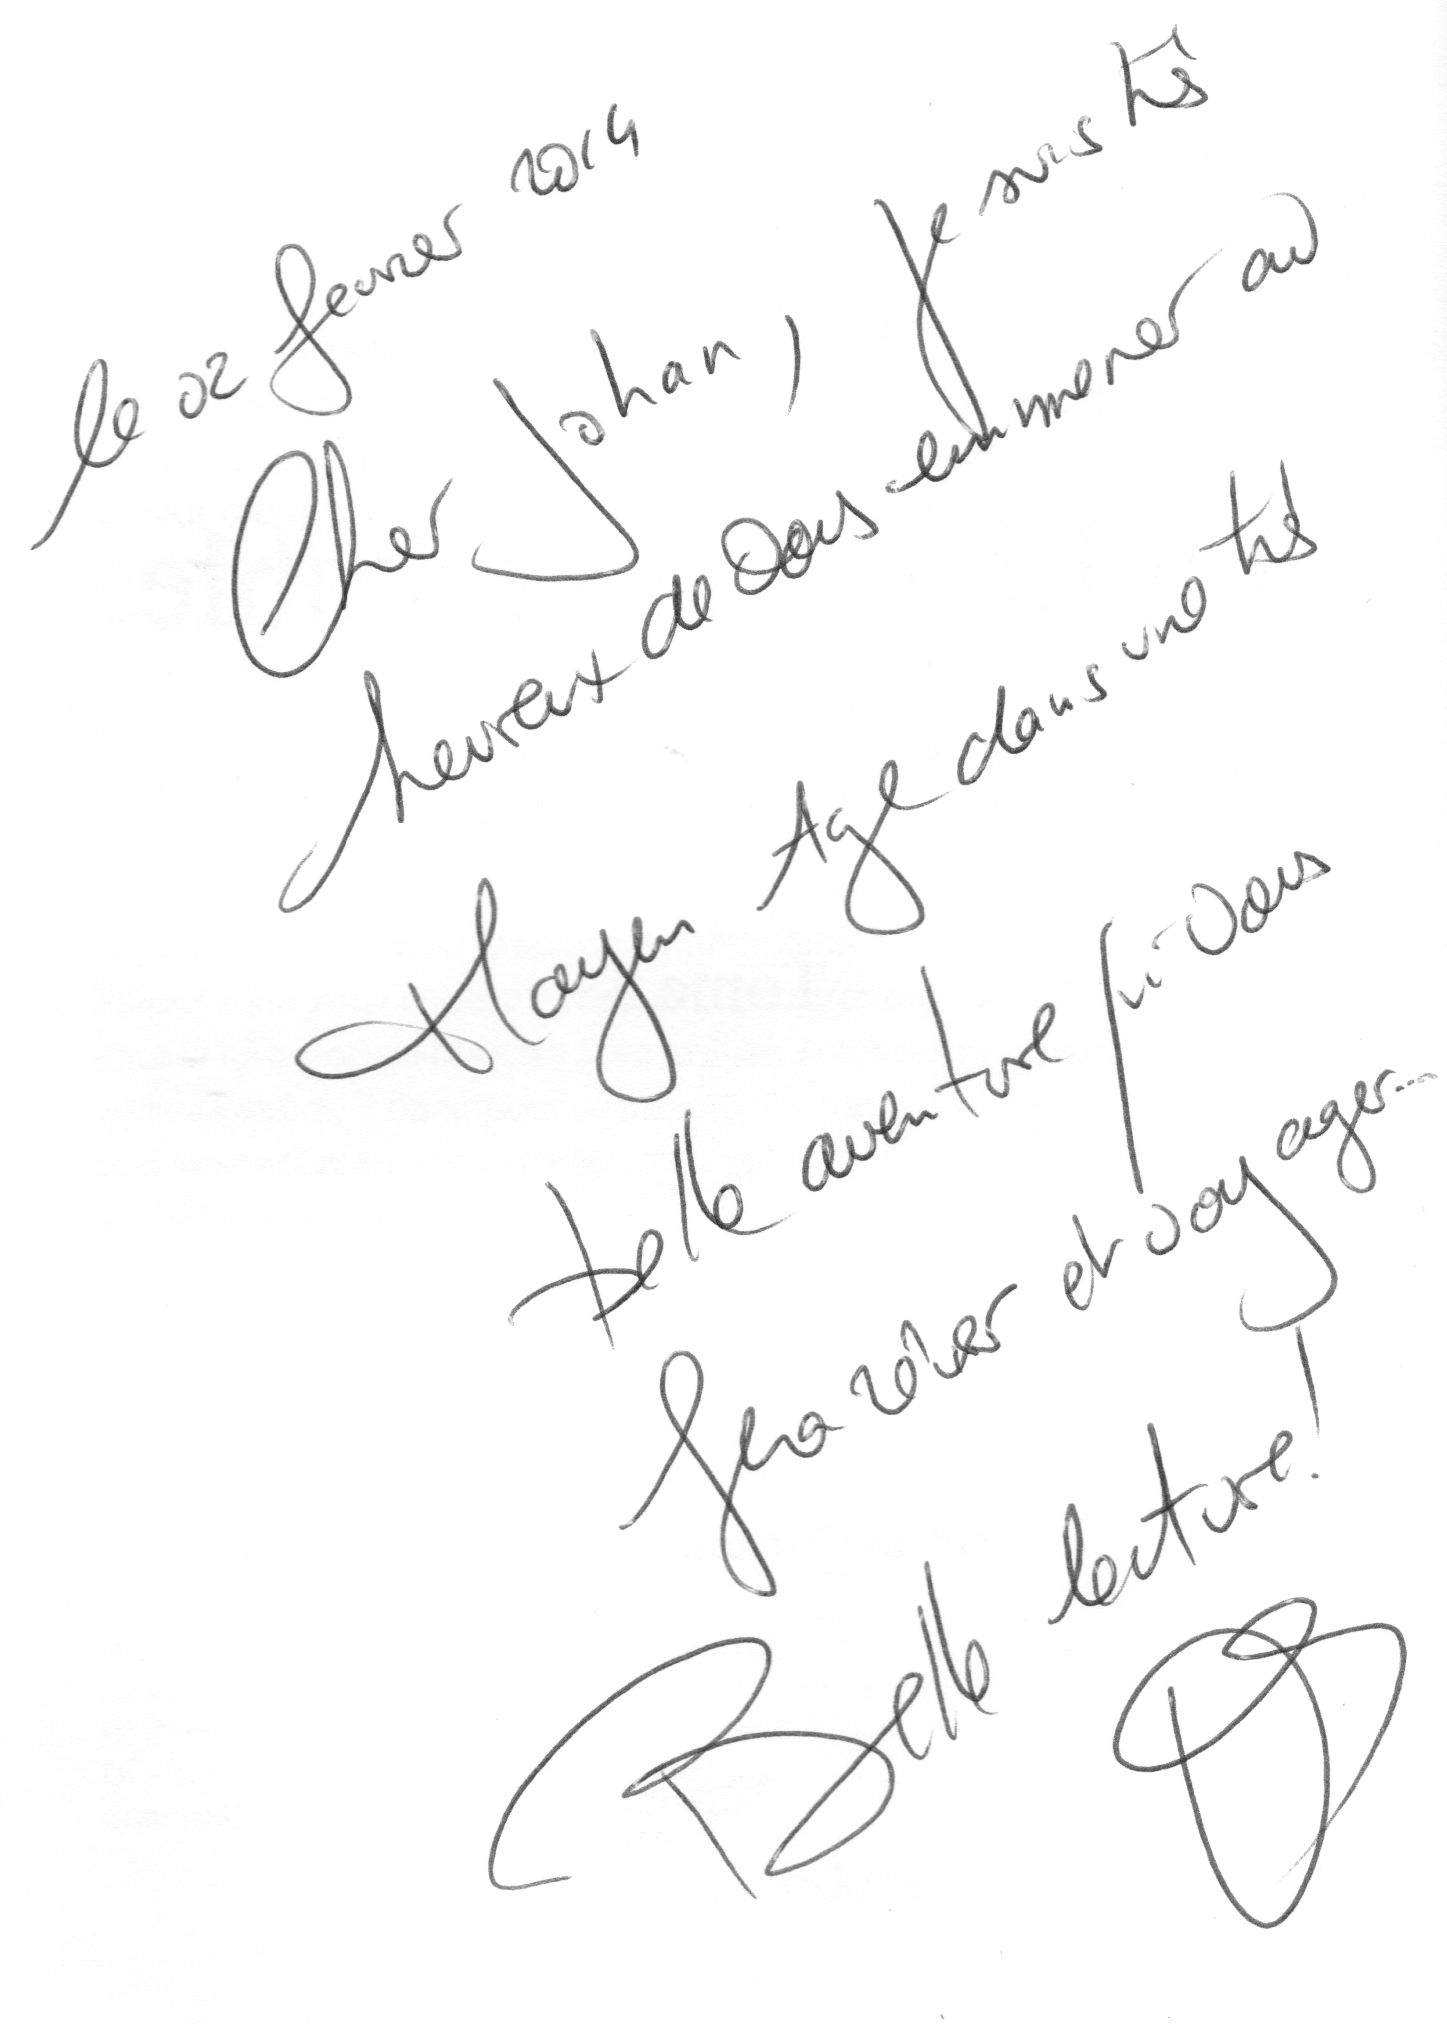 le 02 fevrier 2014
Cher Johan, Je suis très
heureux de vous emmener au
Moyen Age dans une très
belle aventure qui vous
fera rêver et voyager...
Belle lecture!